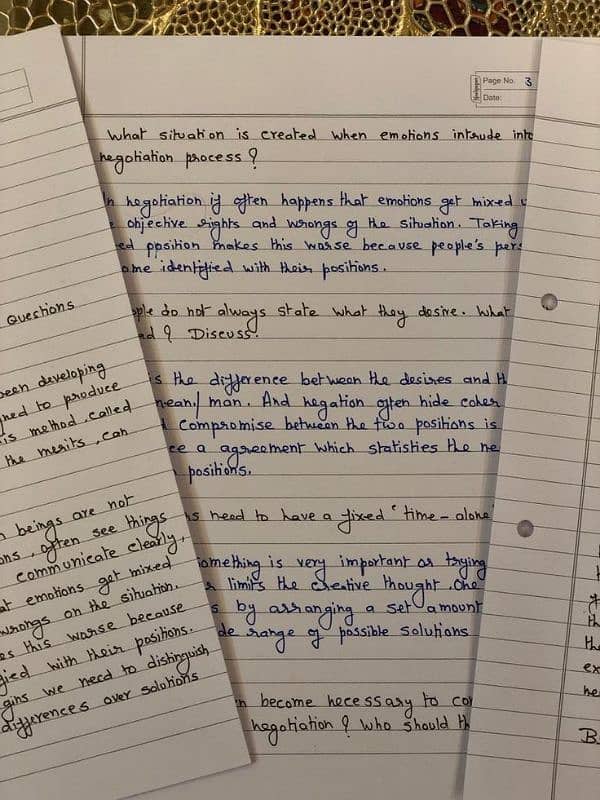 Page No. 3
Date:
What situation is created when emotions intrude into
negotiation process?
negotiation if often happens that emotions get mixed
objective rights and wrongs of the situation. Taking
ppsition makes this worse because people's
identified with their positions.
do not always state what they desire. What
? Discuss.
is the difference between the desires and
mean/ man. And negation often hide
Compromise between the two positions is
a agreement which statisties the
positions.
need to have a fixed "time - alone
something is very important or trying
limits the creative thought. One
by arranging a set amount
range of possible solutions
become necessary to
negotiation? Who should
Questions
been developing
to produce
is method, called
the merits, can
beings are not
often see things
communicate clearly,
emotions get mixed
wrongs on the situation.
this worse because
with their positions.
we need to distinguish
differences over solutions
B